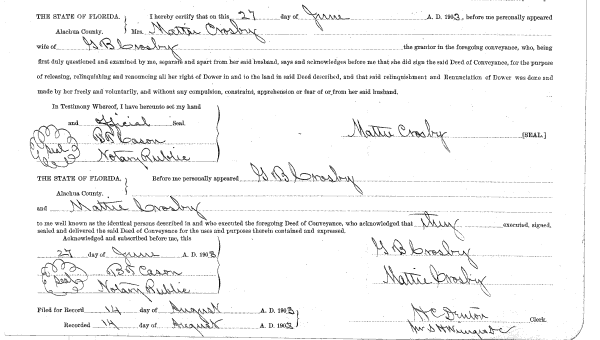 THE STATE OF FLORIDA. } I hereby certify that on this 27 day of June A. D. 1903, before me personally appeared
Alachua County. Mrs. Mattie Crosby
wife of G B Crosby the grantor in the foregoing conveyance, who, being
first duly questioned and examined by me, separate and apart from her said husband, says and acknowledges before me that she did sign the said Deed of Conveyance, for the purpose
of releasing, relinquishing and renouncing all her right of Dower in and to the land in said Deed described, and that said relinquishment and Renunciation of Dower was done and
made by her freely and voluntarily, and without any compulsion, constraint, apprehension or fear of or from her said husband.
In Testimony Whereof, I have hereunto set my hand
and official Seal.
Seal B F Cason Mattie Crosby [SEAL.]
Notary Public
THE STATE OF FLORIDA. } Before me personally appeared G B Crosby
Alachua County.
and Mattie Crosby
to me well known as the identical persons described in and who executed the foregoing Deed of Conveyance, who acknowledged that they executed, signed,
sealed and delivered the said Deed of Conveyance for the uses and purposes therein contained and expressed.
Acknowledged and subscribed before me, this
27 day of June A. D. 1903 G B Crosby
Seal B F Cason Mattie Crosby
Notary Public
Filed for Record 14 day of August A. D. 1903 H C Denton Clerk.
Recorded 14 day of August A. D. 1903